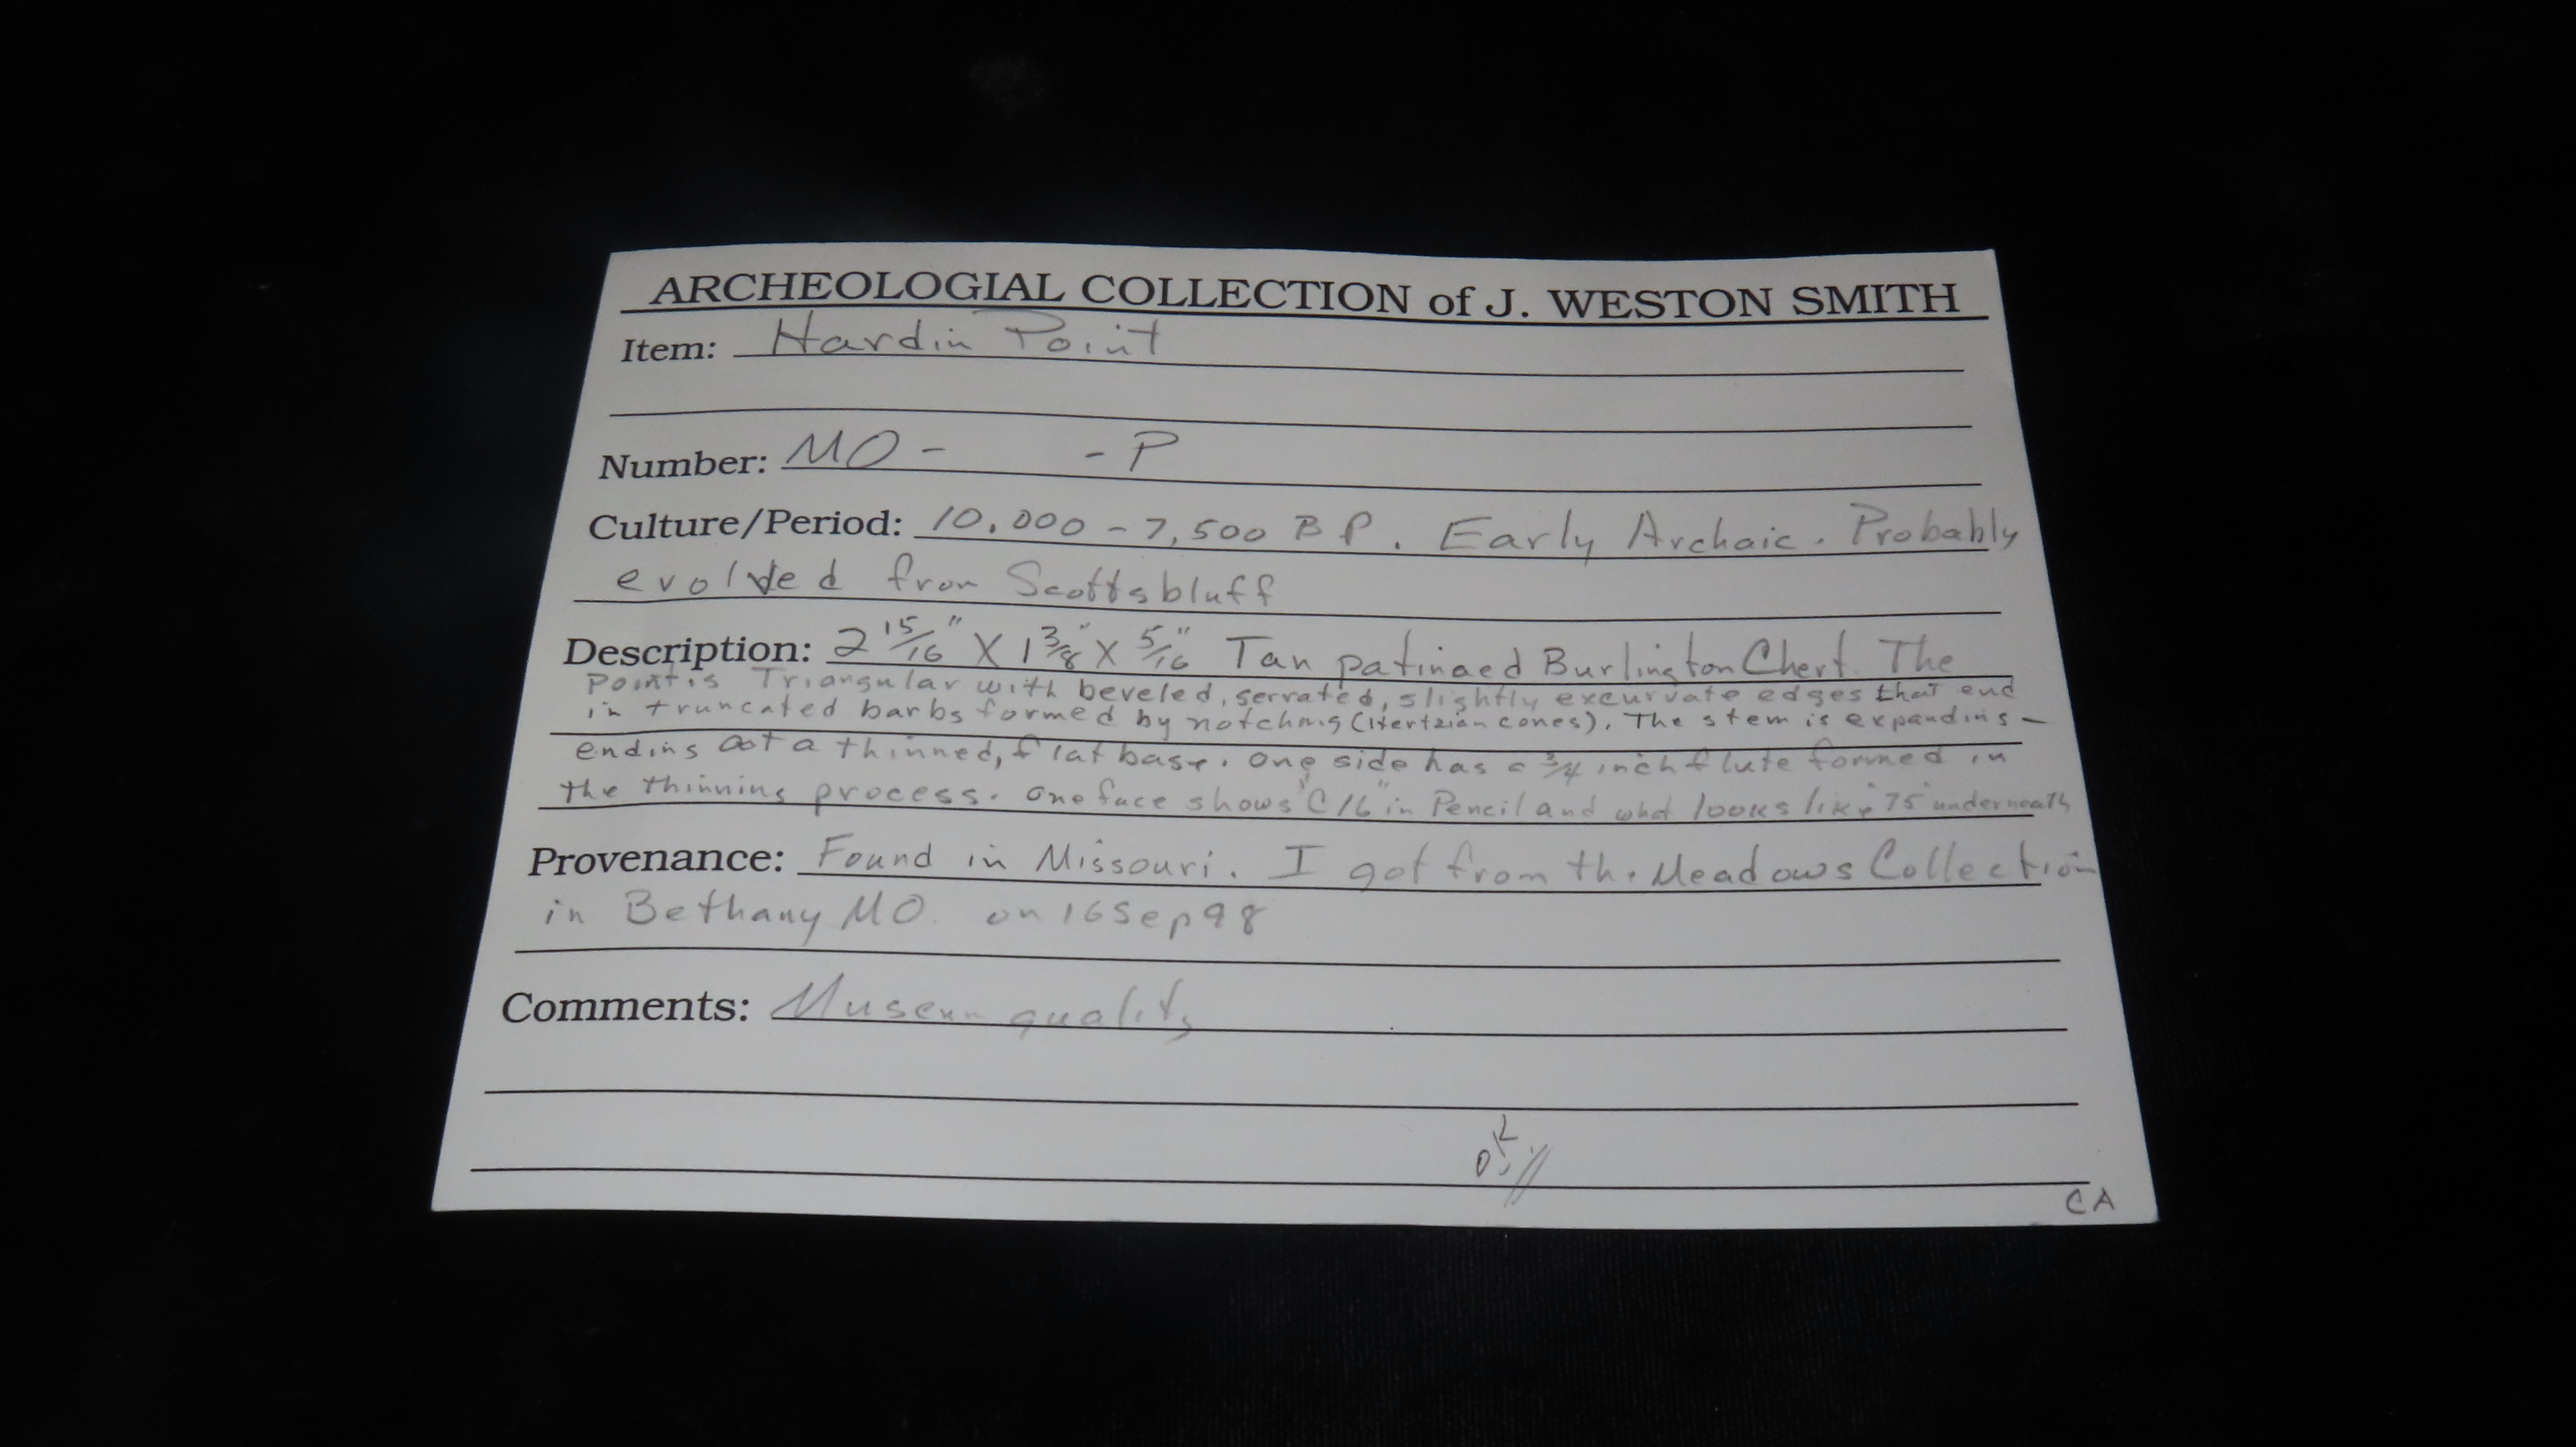 ARCHEOLOGIAL COLLECTION of J. WESTON SMITH
Item: Hardin Point
Number: MO - - P
Culture/Period: 10,000 - 7,500 BP. Early Archaic. Probably
evolved from Scottsbluff
Description: 2 15/16" X 1 3/8" X 5/16" Tan patinaed Burlington Chert. The
point is Triangular with beveled, serrated, slightly excurvate edges that end
in truncated barbs formed by notching (Hertzian cones). The stem is expanding -
ending at a thinned, flat base. One side has a 3/4 inch flute formed in
the thinning process. One face shows "C16" in Pencil and what looks like "75" underneath
Provenance: Found in Missouri. I got from the Meadows Collection
in Bethany MO. on 16Sep98
Comments: Museum quality
OK
CA